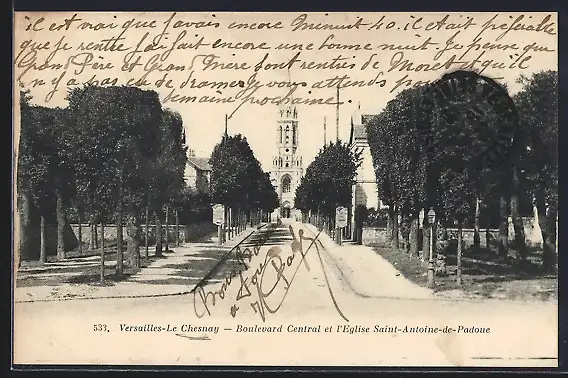 il est vrai que j'avais encore Minuit 40. il était préférable
que je rentre tard j'ai fait encore une bonne nuit. Je pense que
Grand Père et Grand Mère sont rentrés de Moret et qu'il
n'y a pas eu de drame. Je vous attends
semaine prochaine.
Bons
à tous
533. Versailles-Le Chesnay — Boulevard Central et l'Eglise Saint-Antoine-de-Padoue